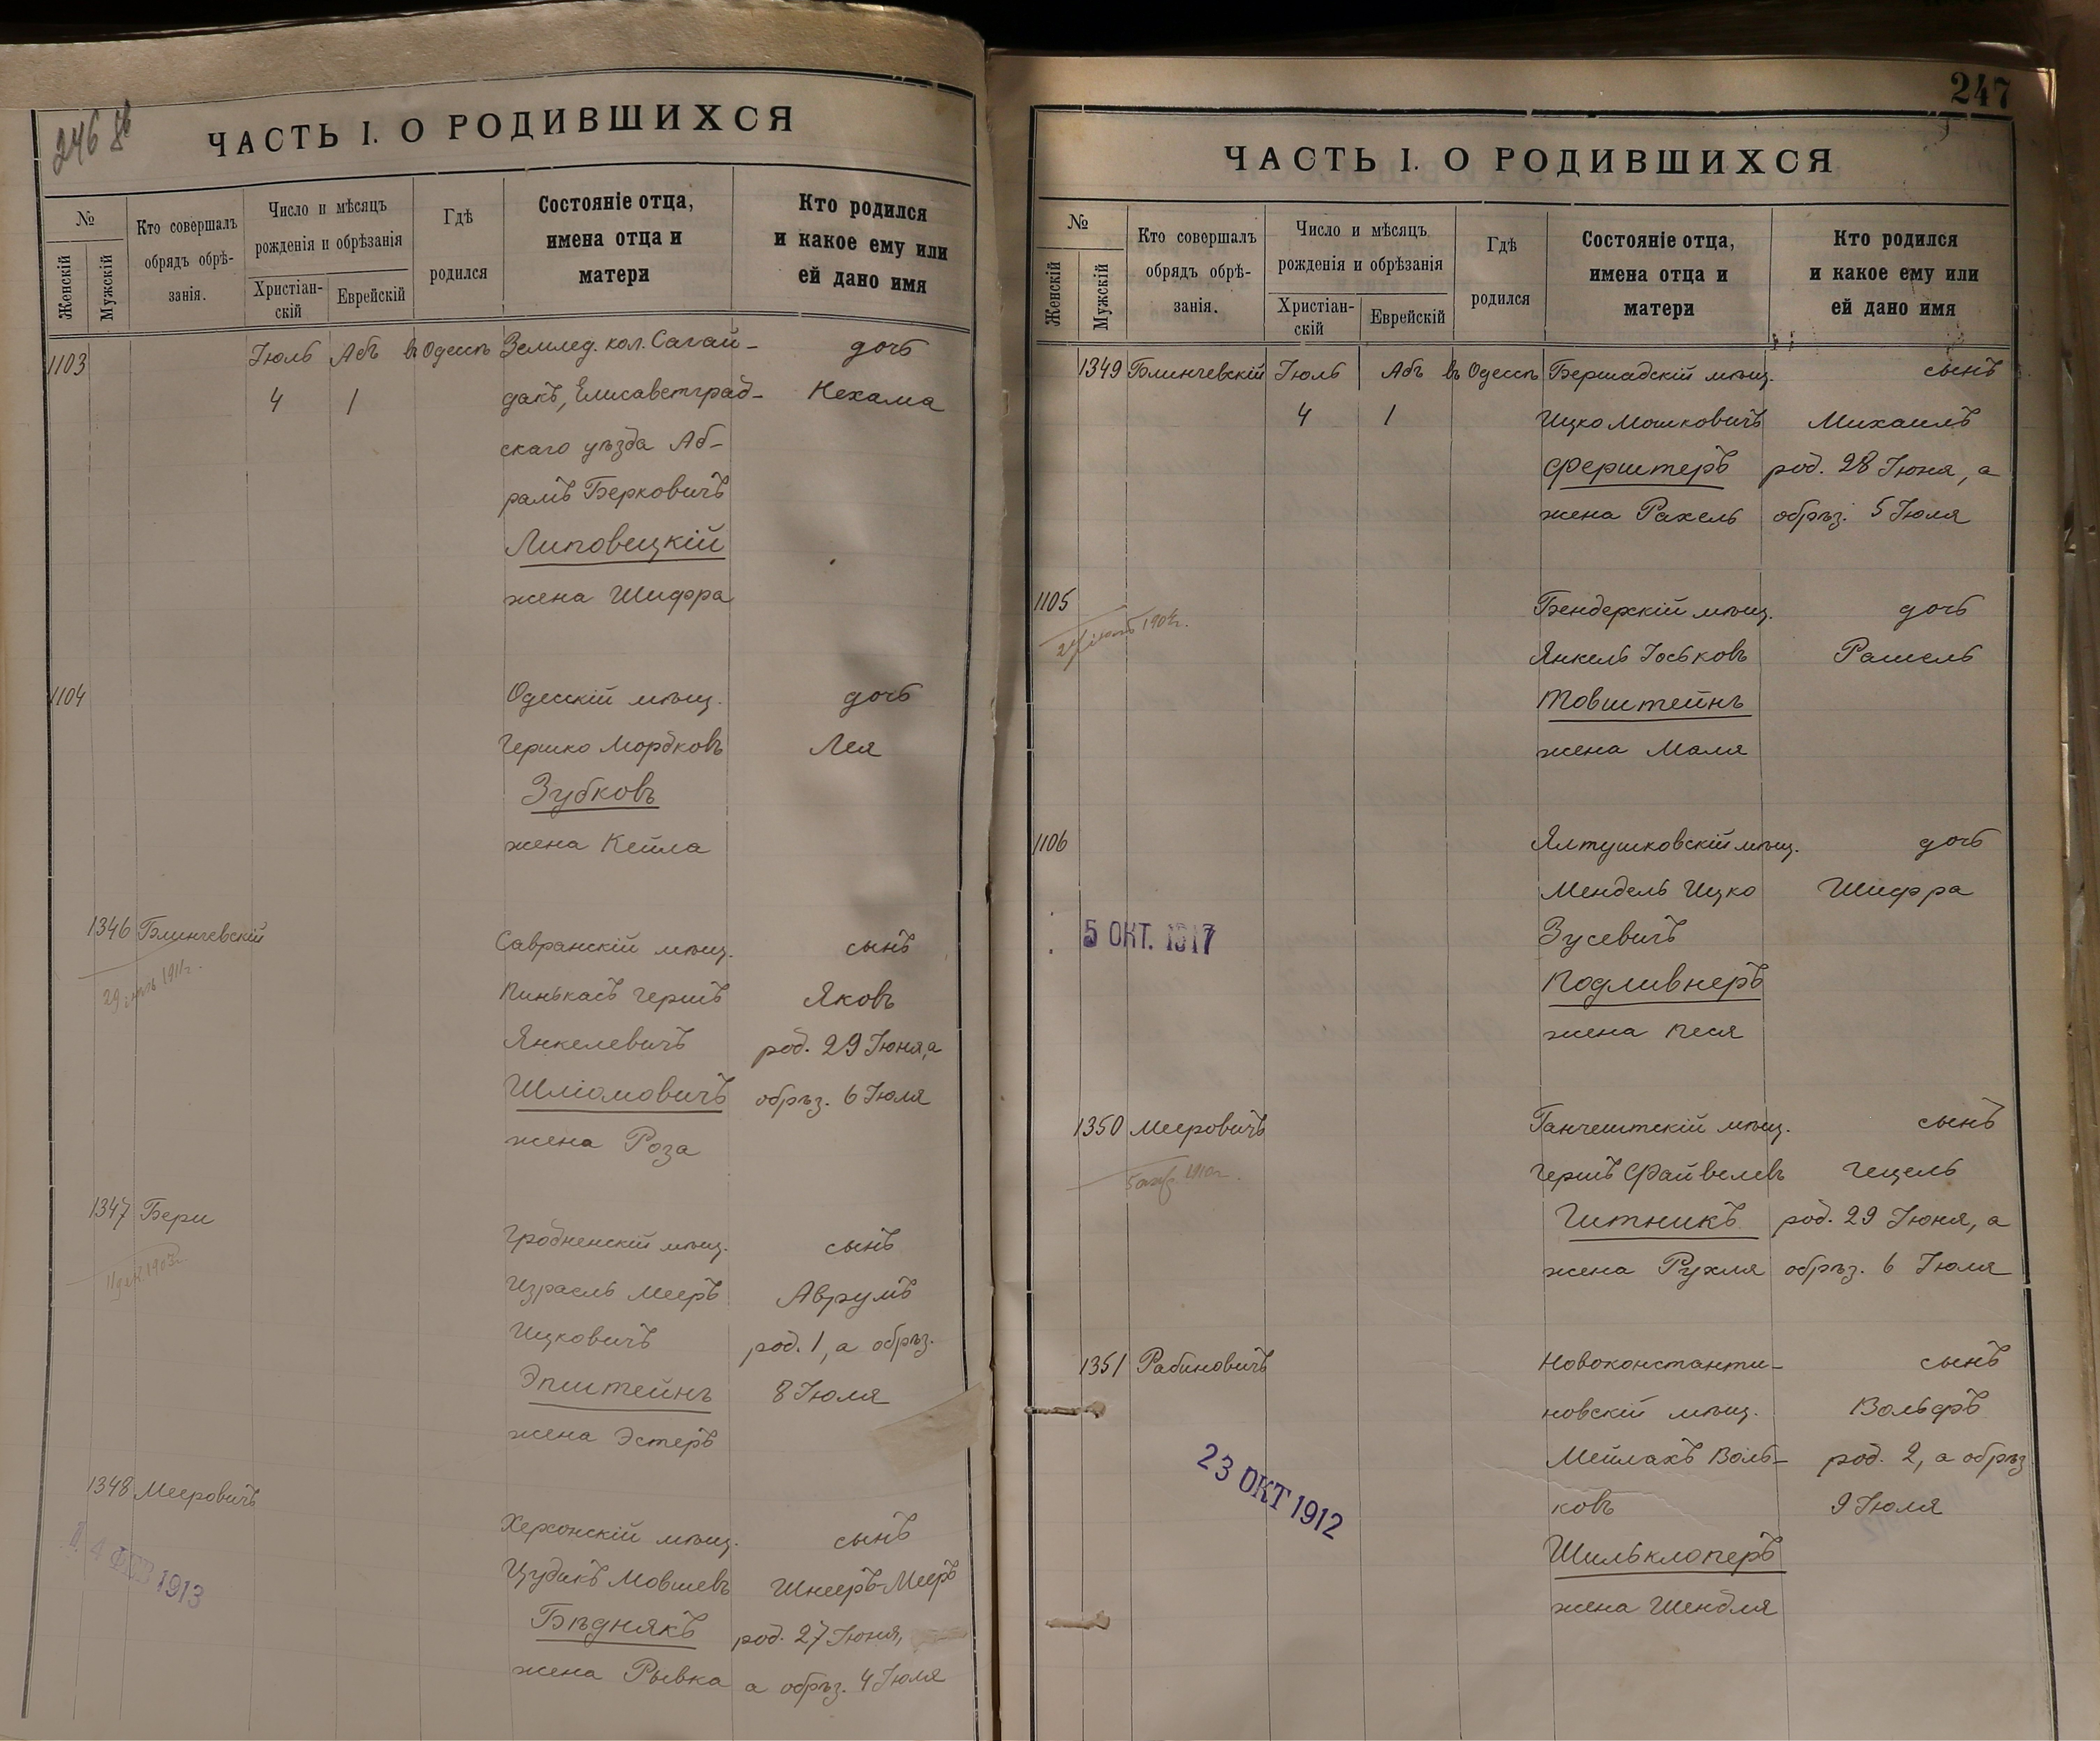 246 об
ЧАСТЬ I. О РОДИВШИХСЯ
№
Женскій
Мужскій
Кто совершалъ
обрядъ обрѣ-
занія.
Число и мѣсяцъ
рожденія и обрѣзанія
Христіан-
скій
Еврейскій
Гдѣ
родился
Состояніе отца,
имена отца и
матери
Кто родился
и какое ему или
ей дано имя
1103 Іюль Абъ въ Одессѣ Землед. кол. Сагай- дочь
4 1 дакъ, Елисаветград- Нехама
скаго уѣзда Аб-
рамъ Берковичъ
Липовецкій
жена Шифра
1104 Одесскій мѣщ. дочь
Гершко Мордковъ Лея
Зубковъ
жена Кейла
1346 Блинчевскій Савранскій мѣщ. сынъ
29 1911г. Пинькасъ Гершъ Яковъ
Янкелевичъ род. 29 Іюня, а
Шліомовичъ обрѣз. 6 Іюля
жена Роза
1347 Бери Гродненскій мѣщ. сынъ
11 дек. 1903г. Израель Мееръ Аврумъ
Ицковичъ род. 1, а обрѣз.
Эпштейнъ 8 Іюля
жена Эстеръ
1348 Мееровичъ Херсонскій мѣщ. сынъ
4 ФЕВ 1913 Цудикъ Мовшевъ Шнееръ-Мееръ
Бѣднякъ род. 27 Іюня,
жена Рывка а обрѣз. 4 Іюля
247
ЧАСТЬ I. О РОДИВШИХСЯ
№
Женскій
Мужскій
Кто совершалъ
обрядъ обрѣ-
занія.
Число и мѣсяцъ
рожденія и обрѣзанія
Христіан-
скій
Еврейскій
Гдѣ
родился
Состояніе отца,
имена отца и
матери
Кто родился
и какое ему или
ей дано имя
1349 Блинчевскій Іюль Абъ въ Одессѣ Бершадскій мѣщ. сынъ
4 1 Ицко Мошковичъ Михаилъ
Ферштеръ род. 28 Іюня, а
жена Рахель обрѣз. 5 Іюля
1105 Бендерскій мѣщ. дочь
Янкель Іоськовъ Рашель
Товштейнъ
жена Маля
1106 Ялтушковскій мѣщ. дочь
Мендель Ицко Шифра
5 ОКТ. 1917 Зусевичъ
Подливнеръ
жена Песя
1350 Мееровичъ Ганчештскій мѣщ. сынъ
1910г. Гершъ Файвелевъ Гецель
Гитникъ род. 29 Іюня, а
жена Рухля обрѣз. 6 Іюля
1351 Рабиновичъ Новоконстанти- сынъ
новскій мѣщ. Вольфъ
23 ОКТ 1912 Мейлахъ Воль- род. 2, а обрѣз.
ковъ 9 Іюля
Шильклоперъ
жена Шендля